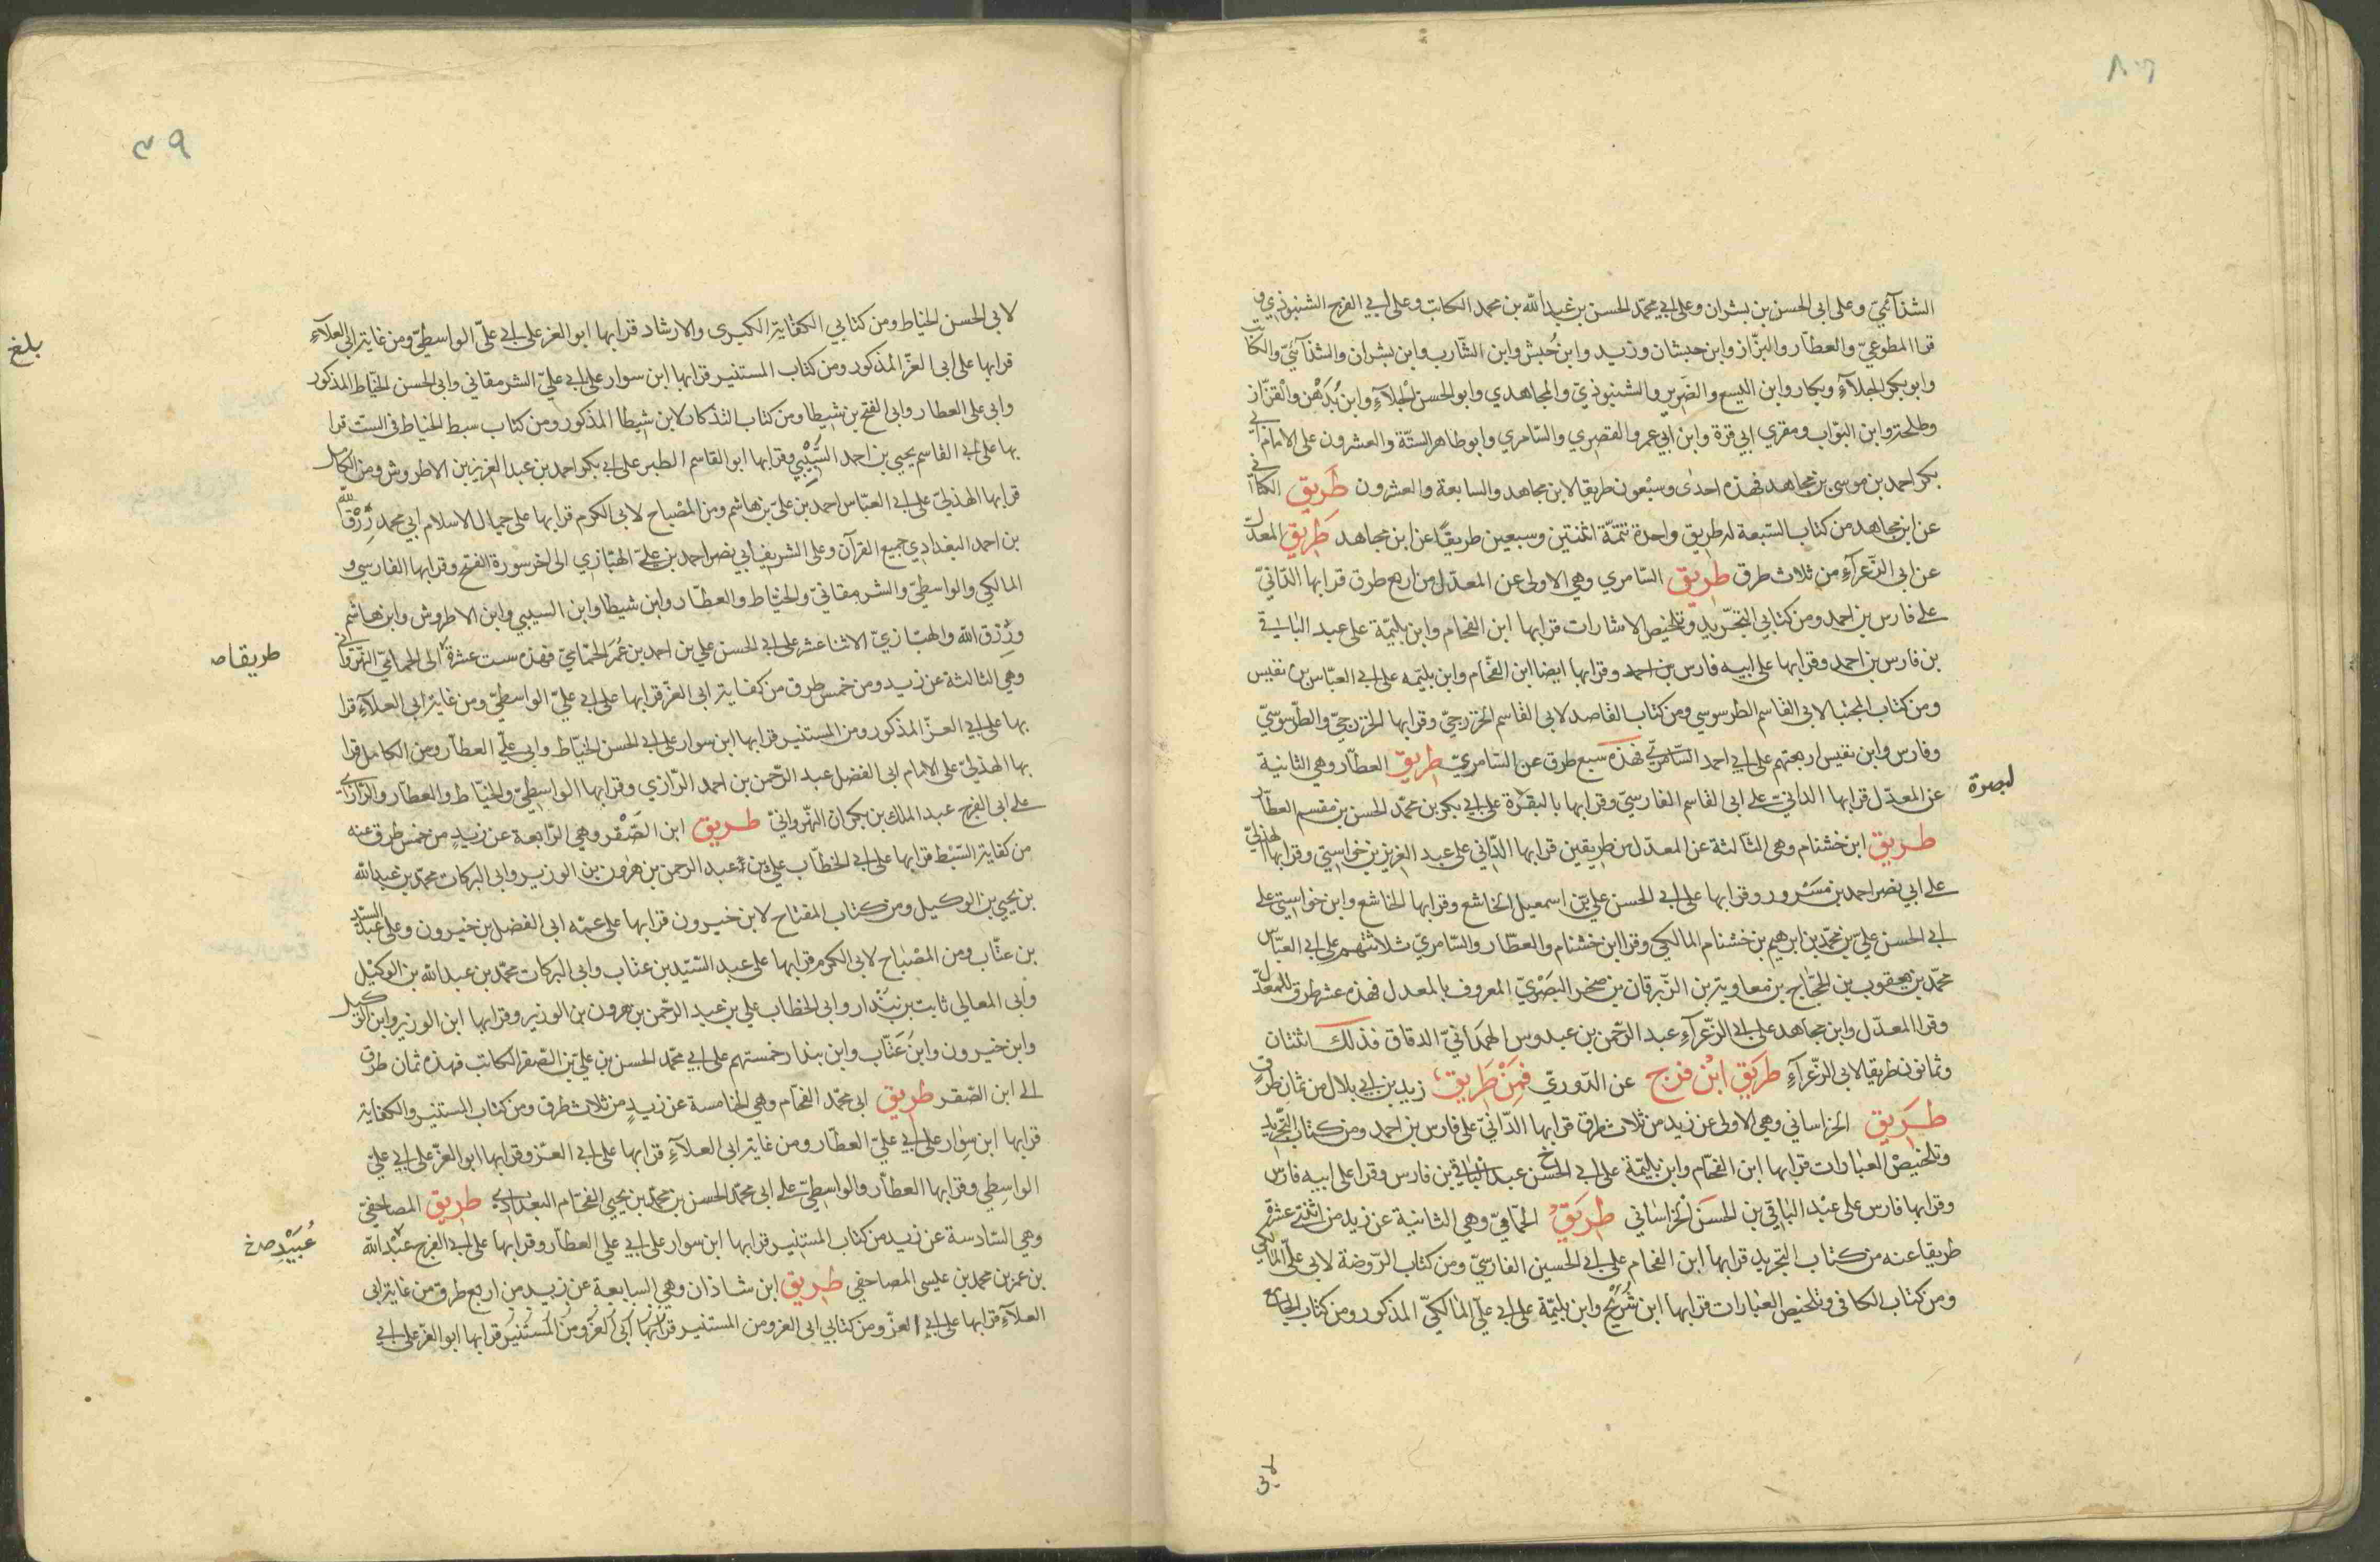 الشذآئيّ وعلى ابى الحسن بن بشران وعلى ابي محمّد الحسن بن عبد الله بن محمد الكاتب وعلى ابي الفرج الشنبوذي و
قرا المطوعيّ والعطّار والبزّاز وابن حبشان وزيد وابن حُبش وابن الشّارب وابن بشران والشذآئيّ والكاتب
وابو بكر الجلآءِ وبكار وابن اليسع والضرير والشنبوذيّ والمجاهدي وابو الحسن الجلآءِ وابن بُدْهُن والقزّاز
وطلحة وابن البوّاب ومقري ابي قرة وابن ابي عمر والقصري والسّامري وابو طاهر الستّة والعشرون على الامام ابي
بكر احمد بن موسى بن مجاهد فهذه احدى وسبْعون طريقا لابن مجاهد والسابعة والعشرون طَرِيق الكتّاني
عن ابن مجاهد من كتاب السّبعة له طريق واحدة تتمّة اثنتين وسبعين طريقًا عن ابن مجاهد طَرِيق المعدّل
عن ابى الزّعرآءِ من ثلاث طرق طَرِيق السّامري وهي الاولى عن المعدّل من اربع طرق قرا بها الدّانيّ
على فارس بن احمد ومن كتابي التجّريد وتلخيص الاشارات قرا بها ابن الفحام وابن بليّمة على عبد الباقي
بن فارس بن احمد وقرا بها على ابيه فارس بن احمد وقرا بها ايضا ابن الفحّام وابن بليّمه على ابي العبّاس بن نفيس
ومن كتاب المجتبا لابى القاسم الطرسوسي ومن كتاب القاصد لابى القاسم الخزرجيّ وقرا بها الخزرجيّ والطّرسوسيّ
وفارس وابن نفيس اربعتهم على ابي احمد السّامريّ فهذه سبع طرق عن السّامريّ طَرِيق العطّار وهي الثانية
عن المعدّل قرا بها الداني على ابى القاسم الفارسيّ وقرا بها بالبقرة على ابي بكر بن محمّد الحسن بن مقسم العطّار
لبصرة
طَرِيق ابن خشنام وهى الثّالثة عن المعدّل من طريقين قرا بها الدّاني على عبد العزيز بن خواستي وقرا بها الهذليّ
على ابي نصر احمد بن مَسْرور وقرا بها على ابي الحسن علي بن اسمعيل الخاشع وقرا بها الخاشع وابن خواستي على
ابي الحسن عليّ بن محمّد بن ابرهيم بن خشنام المالكي وقرا ابن خشنام والعطّار والسّامريّ ثلاثتهم على ابي العبّاس
محمّد بن يعقوب بن الحجّاج بن معاوية بن الزّبرقان بن صخر البَصْريّ المعروف بالمعدل فهذه عشر طرق للمعدّل
وقرا المعدّل وابن مجاهد على ابي الزّعرآءِ عبد الرّحمن بن عبدوس الهمَدانيّ الدقاق فذلك اثنتان
وثمانون طريقا لابي الزّعرآءِ طَرِيق ابْن فرح عن الدّوريّ فمِنْ طَرِيق زيد بن ابي بلال من ثمان طرق
طَرِيق الخراساني وهي الاولى عن زيد من ثلاث طرق قرا بها الدّانيّ على فارس بن احمد ومن كتاب التّجريد
وتلخيصْ العبارات قرا بها ابن الفحّام وابن بليّمة على ابي الحسن عبد الباقي بن فارس وقرا على ابيه فارس
وقرا بها فارس على عبْد الباقي بن الحسَن الخراساني طَرِيق الحمّاميّ وهي الثانية عن زيد من اثنتي عشرة
طريقا عنه من كتاب التجريد قرا بها ابن الفحام على ابي الحسين الفارسيّ ومن كتاب الرّوضة لابى عليّ المالكي
ومن كتاب الكافى وتلخيص العبارات قرا بها ابن شُرَيْح وابن بليّمة على ابي عليّ المالكيّ المذكور ومن كتاب الجامع
لابى
٣٩
لابى الحسن الخياط ومن كتابي الكفاية الكبرى والارشاد قرا بها ابو العز على ابي عليّ الواسطيّ ومن غاية ابي العلآءِ
بلغ
قرا بها على ابى العزّ المذكور ومن كتاب المستنير قرا بها ابن سوار على ابي عليّ الشرمقاني وابى الحسن الخيّاط المذكور
وابى على العطار وابى الفتح بن شيطا ومن كتاب التذكار لابن شيطا المذكور ومن كتاب سبط الخياط فى الست قرا
بها على ابي القاسم يحيي بن احمد السَّيْبي وقرا بها ابو القاسم الطبر على ابي بكر احمد بن عبد العزيز بن الاطروش ومن الكامل
قرا بها الهذليّ على ابي العبّاس احمد بن عليّ بن هاشم ومن المصْباح لابى الكرم قرا بها على جمال الاسلام ابي محمد رِزْق الله
بن احمد البغدادي جميع القرآن وعلى الشريف ابي نصر احمد بن عليّ الهبّازي الى اخر سورة الفتح وقرا بها الفارسي و
المالكي والواسطيّ والشرمقانيّ والخيّاط والعطّار وابن شيطا وابن السيبي وابن الاطروش وابن هاشم
ورزق الله والهبّازيّ الاثنا عشر على ابي الحسن علي بن احمد بن عُمَر الحمّاميّ فهذه ست عشرة الى الحماميّ النّهرواني
طريقا صـ
وهي الثالثة عن زيد ومن خمس طرق من كفاية ابى العزّ قرا بها على ابي عليّ الواسطيّ ومن غاية ابى العلآءِ قرا
بها على ابي العزّ المذكور ومن المستنير قرا بها ابن سوار على ابي الحسن الخيّاط وابي عليّ العطّار ومن الكامل قرا
بها الهذليّ على الامام ابى الفضل عبد الرّحمن بن احمد الرّازي وقرا بها الواسطيّ والخيّاط والعطّار والرّازي
على ابى الفرج عبد الملك بن بكران النّهرواني طَرِيق ابن الصّقْر وهي الرّابعة عن زيدٍ من خمس طرق عنه
من كفاية السّبْط قرا بها على ابي الخطّاب علي بن عبد الرحمن بن هٰرون بن الوزير وابى البركات محمّد بن عبد الله
بن يحيي بن الوكيل ومن كتاب المفتاح لابن خيرون قرا بها على عمّه ابى الفضل بن خيرون وعلى عبد السيّد
بن عتّاب ومن المصْباح لابى الكرم قرا بها على عبد السّيّد بن عتاب وابى البركات محمّد بن عبد الله بن الوكيْل
وابى المعالي ثابت بن بُنْدار وابى الخطاب علي بن عبد الرّحمن بن هرون بن الوزير وقرا بها ابن الوزير وابن الوكيل
وابن خيرون وابن عَتّاب وابن بندار خمستهم على ابي محمّد الحسن بن عليّ بن الصّقر الكاتب فهذه ثمان طرق
الى ابن الصّقر طَرِيق ابى محمّد الفحّام وهي الخامسة عن زيدٍ من ثلاث طرق ومن كتاب المستنير والكفاية
قرا بها ابن سِوار على ابي عليّ العطّار ومن غاية ابى العلآءِ قرا بها على ابي العزّ وقرا بها ابو العزّ على ابي عليّ
الواسِطي وقرا بها العطّار والواسطيّ على ابى محمّد الحسن بن محمّد بن يحيي الفحّام البغدادي طَرِيق المصاحفيّ
وهي السّادسة عن زيد من كتاب المستنير قرا بها ابن سوار على ابي علي العطّار وقرا بها على ابي الفرج عبْد الله
عُبَيْد صـ خ
بن عمر بن محمد بن عيسى المصاحفي طَرِيق ابن شاذان وهي السابعة عن زيد من اربع طرق من غاية ابى
العلآءِ قرا بها على ابي العزّ ومن كتابي ابى العز ومن المستنير قرا بها ابى العز ومن المستنير قرا بها ابو العزّ على ابي